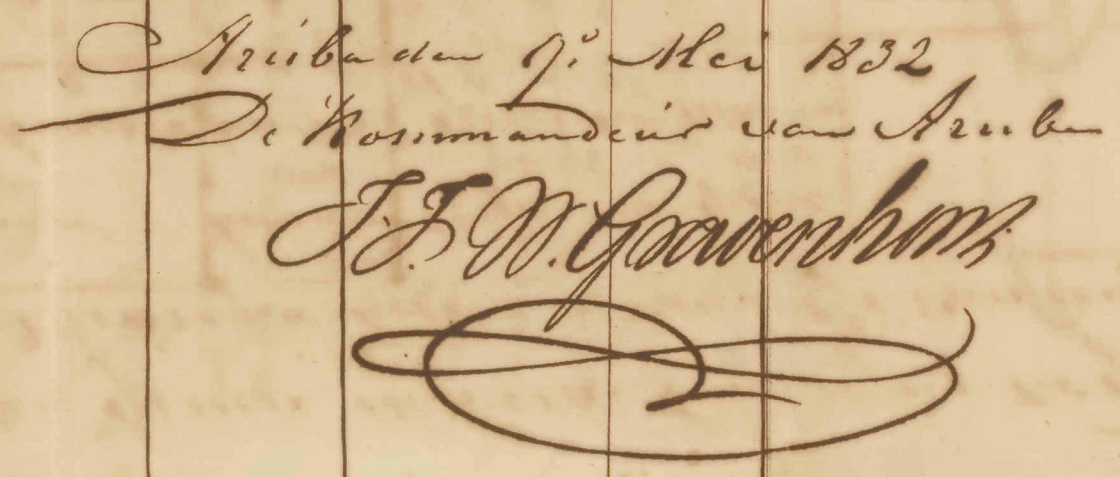 Aruba den 9e Mei 1832
De Kommandeur van Aruba
J. F. W. Gravenhorst